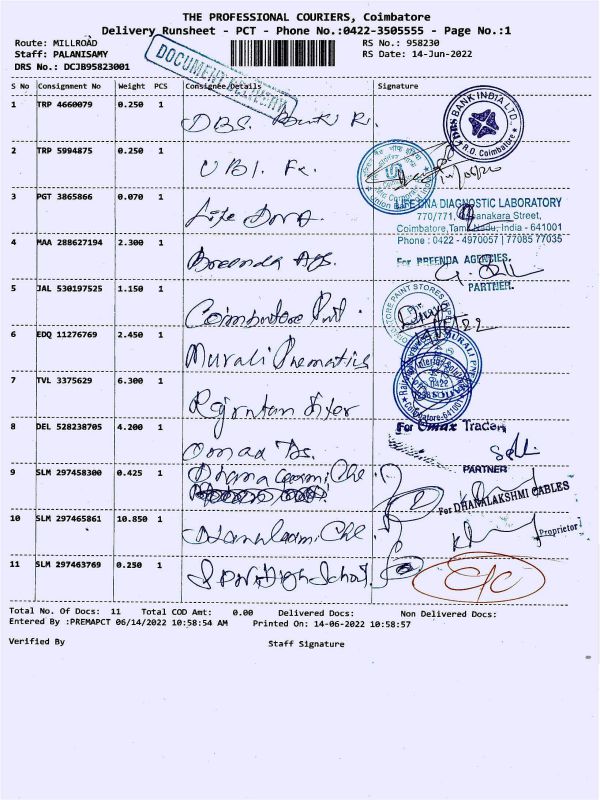 THE PROFESSIONAL COURIERS, Coimbatore
Delivery Runsheet - PCT - Phone No.:0422-3505555 - Page No.:1
Route: MILLROAD
RS No.: 958230
Staff: PALANISAMY
RS Date: 14-Jun-2022
DRS No.: DCJB95823001
DOCUMENT DELIVERY
S No Consignment No Weight PCS Consignee/Details Signature
1 TRP 4660079 0.250 1 DBS. Bank
DBS BANK INDIA LTD.,
R.O. Coimbatore
2 TRP 5994875 0.250 1 UBI.
3 PGT 3865866 0.070 1 Life DNA
LIFE DNA DIAGNOSTIC LABORATORY
770/771, Avanakara Street,
Coimbatore, Tamil Nadu, India - 641001
Phone : 0422 - 4970057 | 77085 77035
4 MAA 288627194 2.300 1 Breenda Ags.
For BREENDA AGENCIES.
PARTNER.
5 JAL 530197525 1.150 1 Coimbatore Paint
COIMBATORE PAINT STORES
6 EDQ 11276769 2.450 1 Murali Pnematics
7 TVL 3375629 6.300 1 Rajratan
Coimbatore-641001
8 DEL 528238705 4.200 1
For Omax Traders
PARTNER
9 SLM 297458300 0.425 1 Dhana Laxmi Che
For DHANALAKSHMI CABLES
10 SLM 297465861 10.850 1 Dhanalaxmi Che
Proprietor
11 SLM 297463769 0.250 1
C/C
Total No. Of Docs: 11 Total COD Amt: 0.00 Delivered Docs: Non Delivered Docs:
Entered By :PREMAPCT 06/14/2022 10:58:54 AM Printed On: 14-06-2022 10:58:57
Verified By Staff Signature